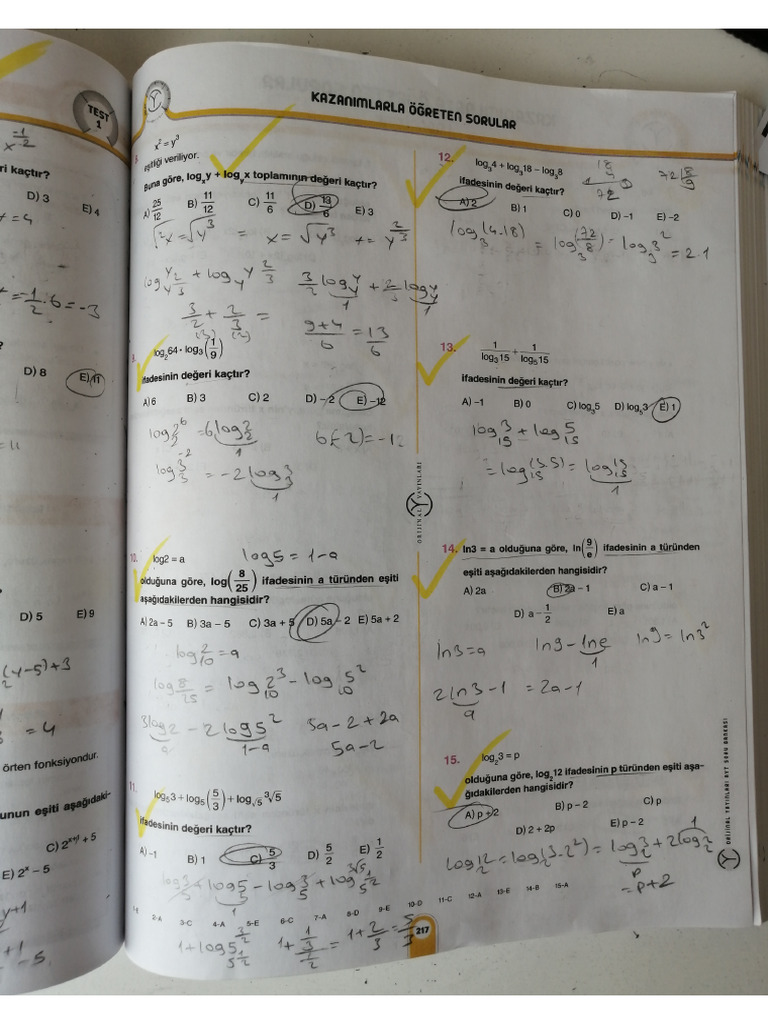 TEST
1
eri kaçtır?
D) 3
E) 4
D) 8
E) 11
D) 5
E) 9
= 4
örten fonksiyondur.
unun eşiti aşağıdaki-
C) 2ˣ⁺¹ + 5
E) 2ˣ − 5
KAZANIMLARLA ÖĞRETEN SORULAR
x² = y³
eşitliği veriliyor.
Buna göre, logₓy + log_y x toplamının değeri kaçtır?
A) 25/12 B) 11/12 C) 11/6 D) 13/6 E) 3
x = √y³
3/2 + 2/3 =
9+4/6 = 13/6
9. log₂64 · log₃(1/9)
ifadesinin değeri kaçtır?
A) 6 B) 3 C) 2 D) −2 E) −12
6(-2) = -12
10. log2 = a
log5 = 1-a
olduğuna göre, log(8/25) ifadesinin a türünden eşiti
aşağıdakilerden hangisidir?
A) 2a − 5 B) 3a − 5 C) 3a + 5 D) 5a − 2 E) 5a + 2
3a - 2 + 2a
5a - 2
11. log₅3 + log₅(5/3) + log_√5 ³√5
ifadesinin değeri kaçtır?
A) −1 B) 1 C) 5/3 D) 5/2 E) 1/2
= 1 + 2/3 = 5/3
12. log₃4 + log₃18 − log₃8
ifadesinin değeri kaçtır?
A) 2 B) 1 C) 0 D) −1 E) −2
log₃(4.18) = log₃(72/8) = log₃3² = 2.1
13. 1/log₃15 + 1/log₅15
ifadesinin değeri kaçtır?
A) −1 B) 0 C) log₃5 D) log₅3 E) 1
log₁₅3 + log₁₅5
= log₁₅(3.5) = log₁₅15
1
14. ln3 = a olduğuna göre, ln(9/e) ifadesinin a türünden
eşiti aşağıdakilerden hangisidir?
A) 2a B) 2a − 1 C) a − 1
D) a − 1/2 E) a
ln3 = a ln9 - lne ln9 = ln3²
2ln3 - 1 = 2a - 1
15. log₂3 = p
olduğuna göre, log₂12 ifadesinin p türünden eşiti aşa-
ğıdakilerden hangisidir?
A) p + 2 B) p − 2 C) p
D) 2 + 2p E) p − 2
log₂12 = log₂(3.2²) = log₂3 + 2log₂2
= p + 2
2-A 3-C 4-A 5-E 6-C 7-A 8-D 9-E 10-D 11-C 12-A 13-E 14-B 15-A
217
ORİJİNAL YAYINLARI
ORİJİNAL YAYINLARI AYT SORU BANKASI